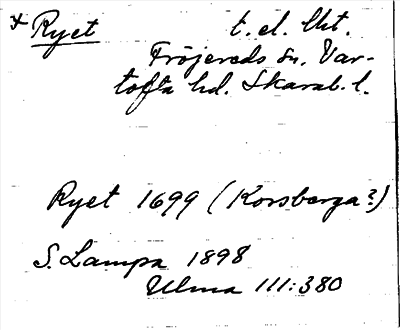 + Ryet t. el. lht.
Fröjereds sn. Var-
tofta hd. Skarab. l.
Ryet 1699 (Korsberga?)
S. Lampa 1898
Ulma 111:380